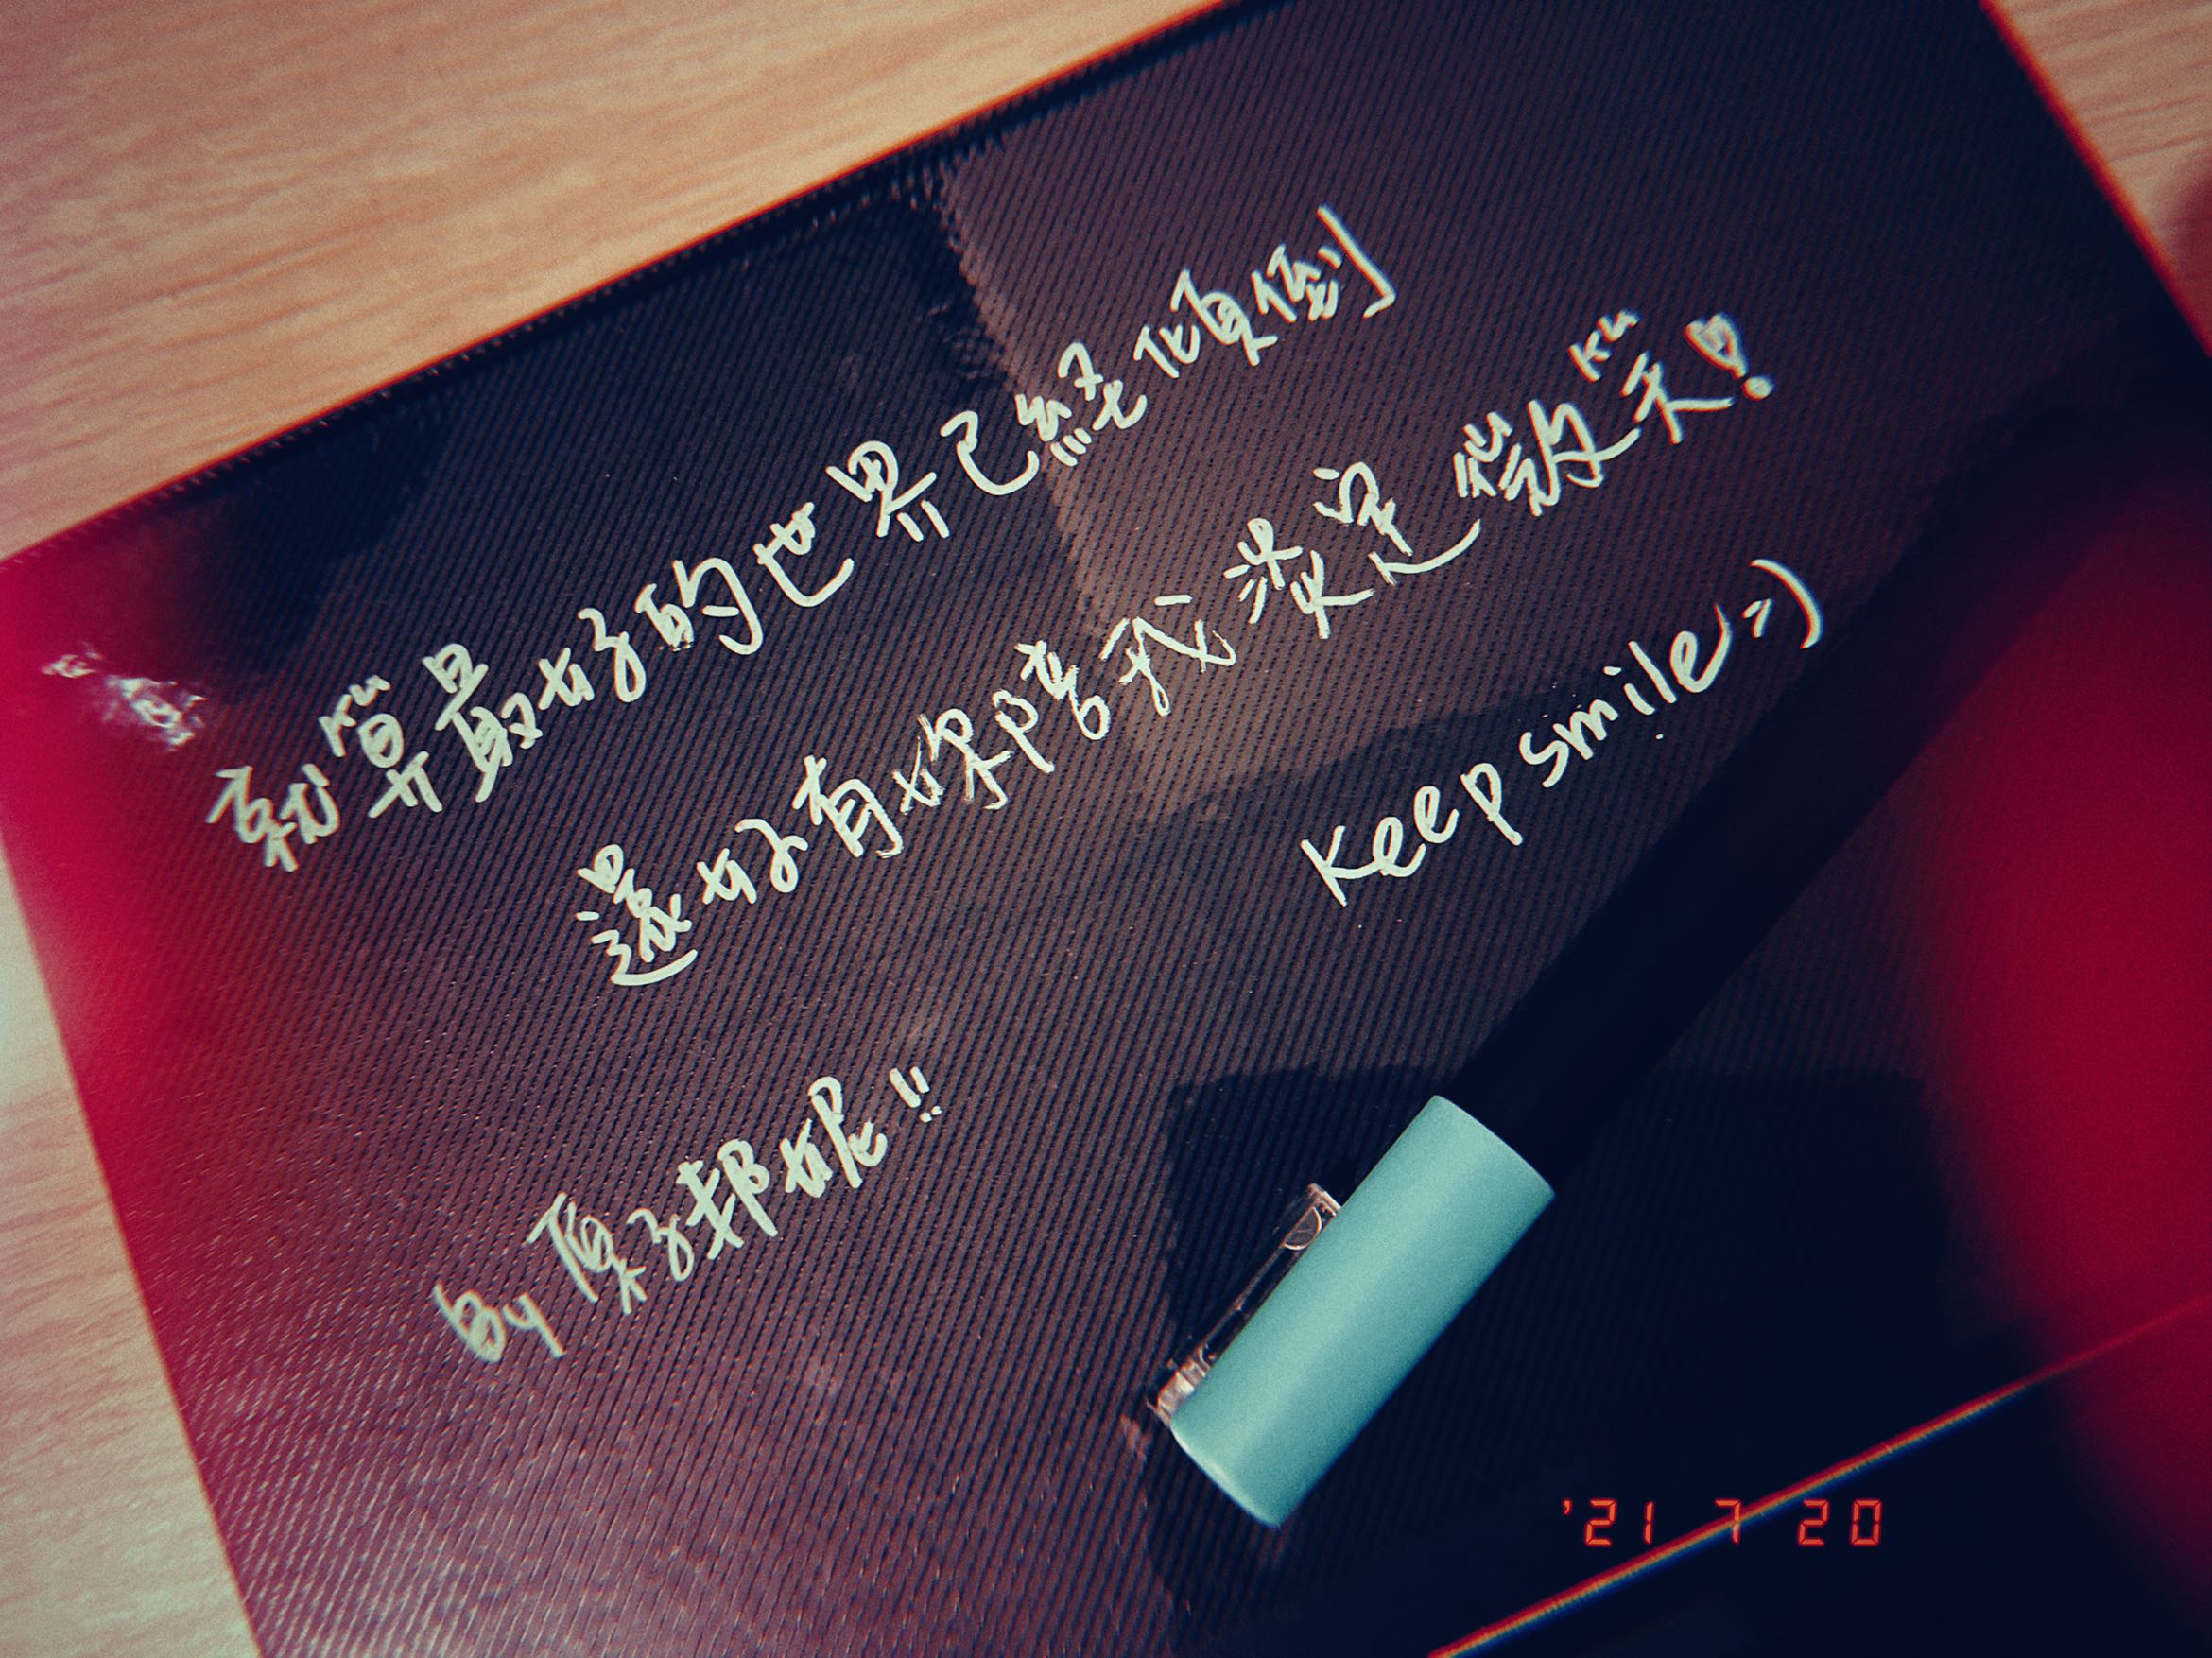 就算最好的世界已經傾倒
還好有妳陪我淡定微笑!
Keep smile=)
By 原子邦妮!!
'21 7 20